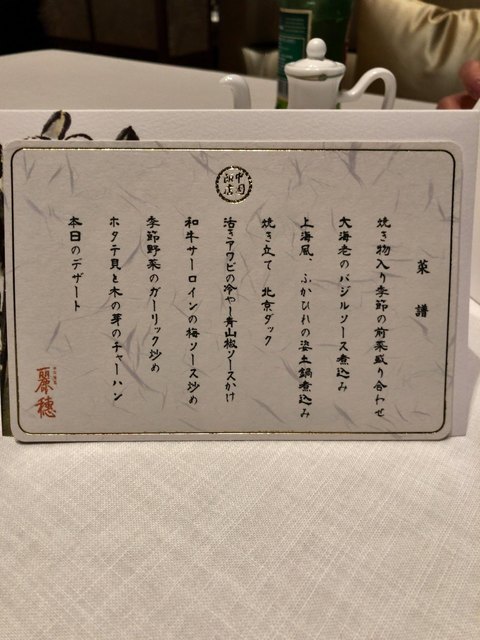 菜譜
焼き物入り季節の前菜盛り合わせ
大海老のバジルソース煮込み
上海風、ふかひれの姿土鍋煮込み
焼き立て 北京ダック
活きアワビの冷やし青山椒ソースかけ
和牛サーロインの梅ソース炒め
季節野菜のガーリック炒め
ホタテ貝と木の芽のチャーハン
本日のデザート
麗穂
中国
飯店